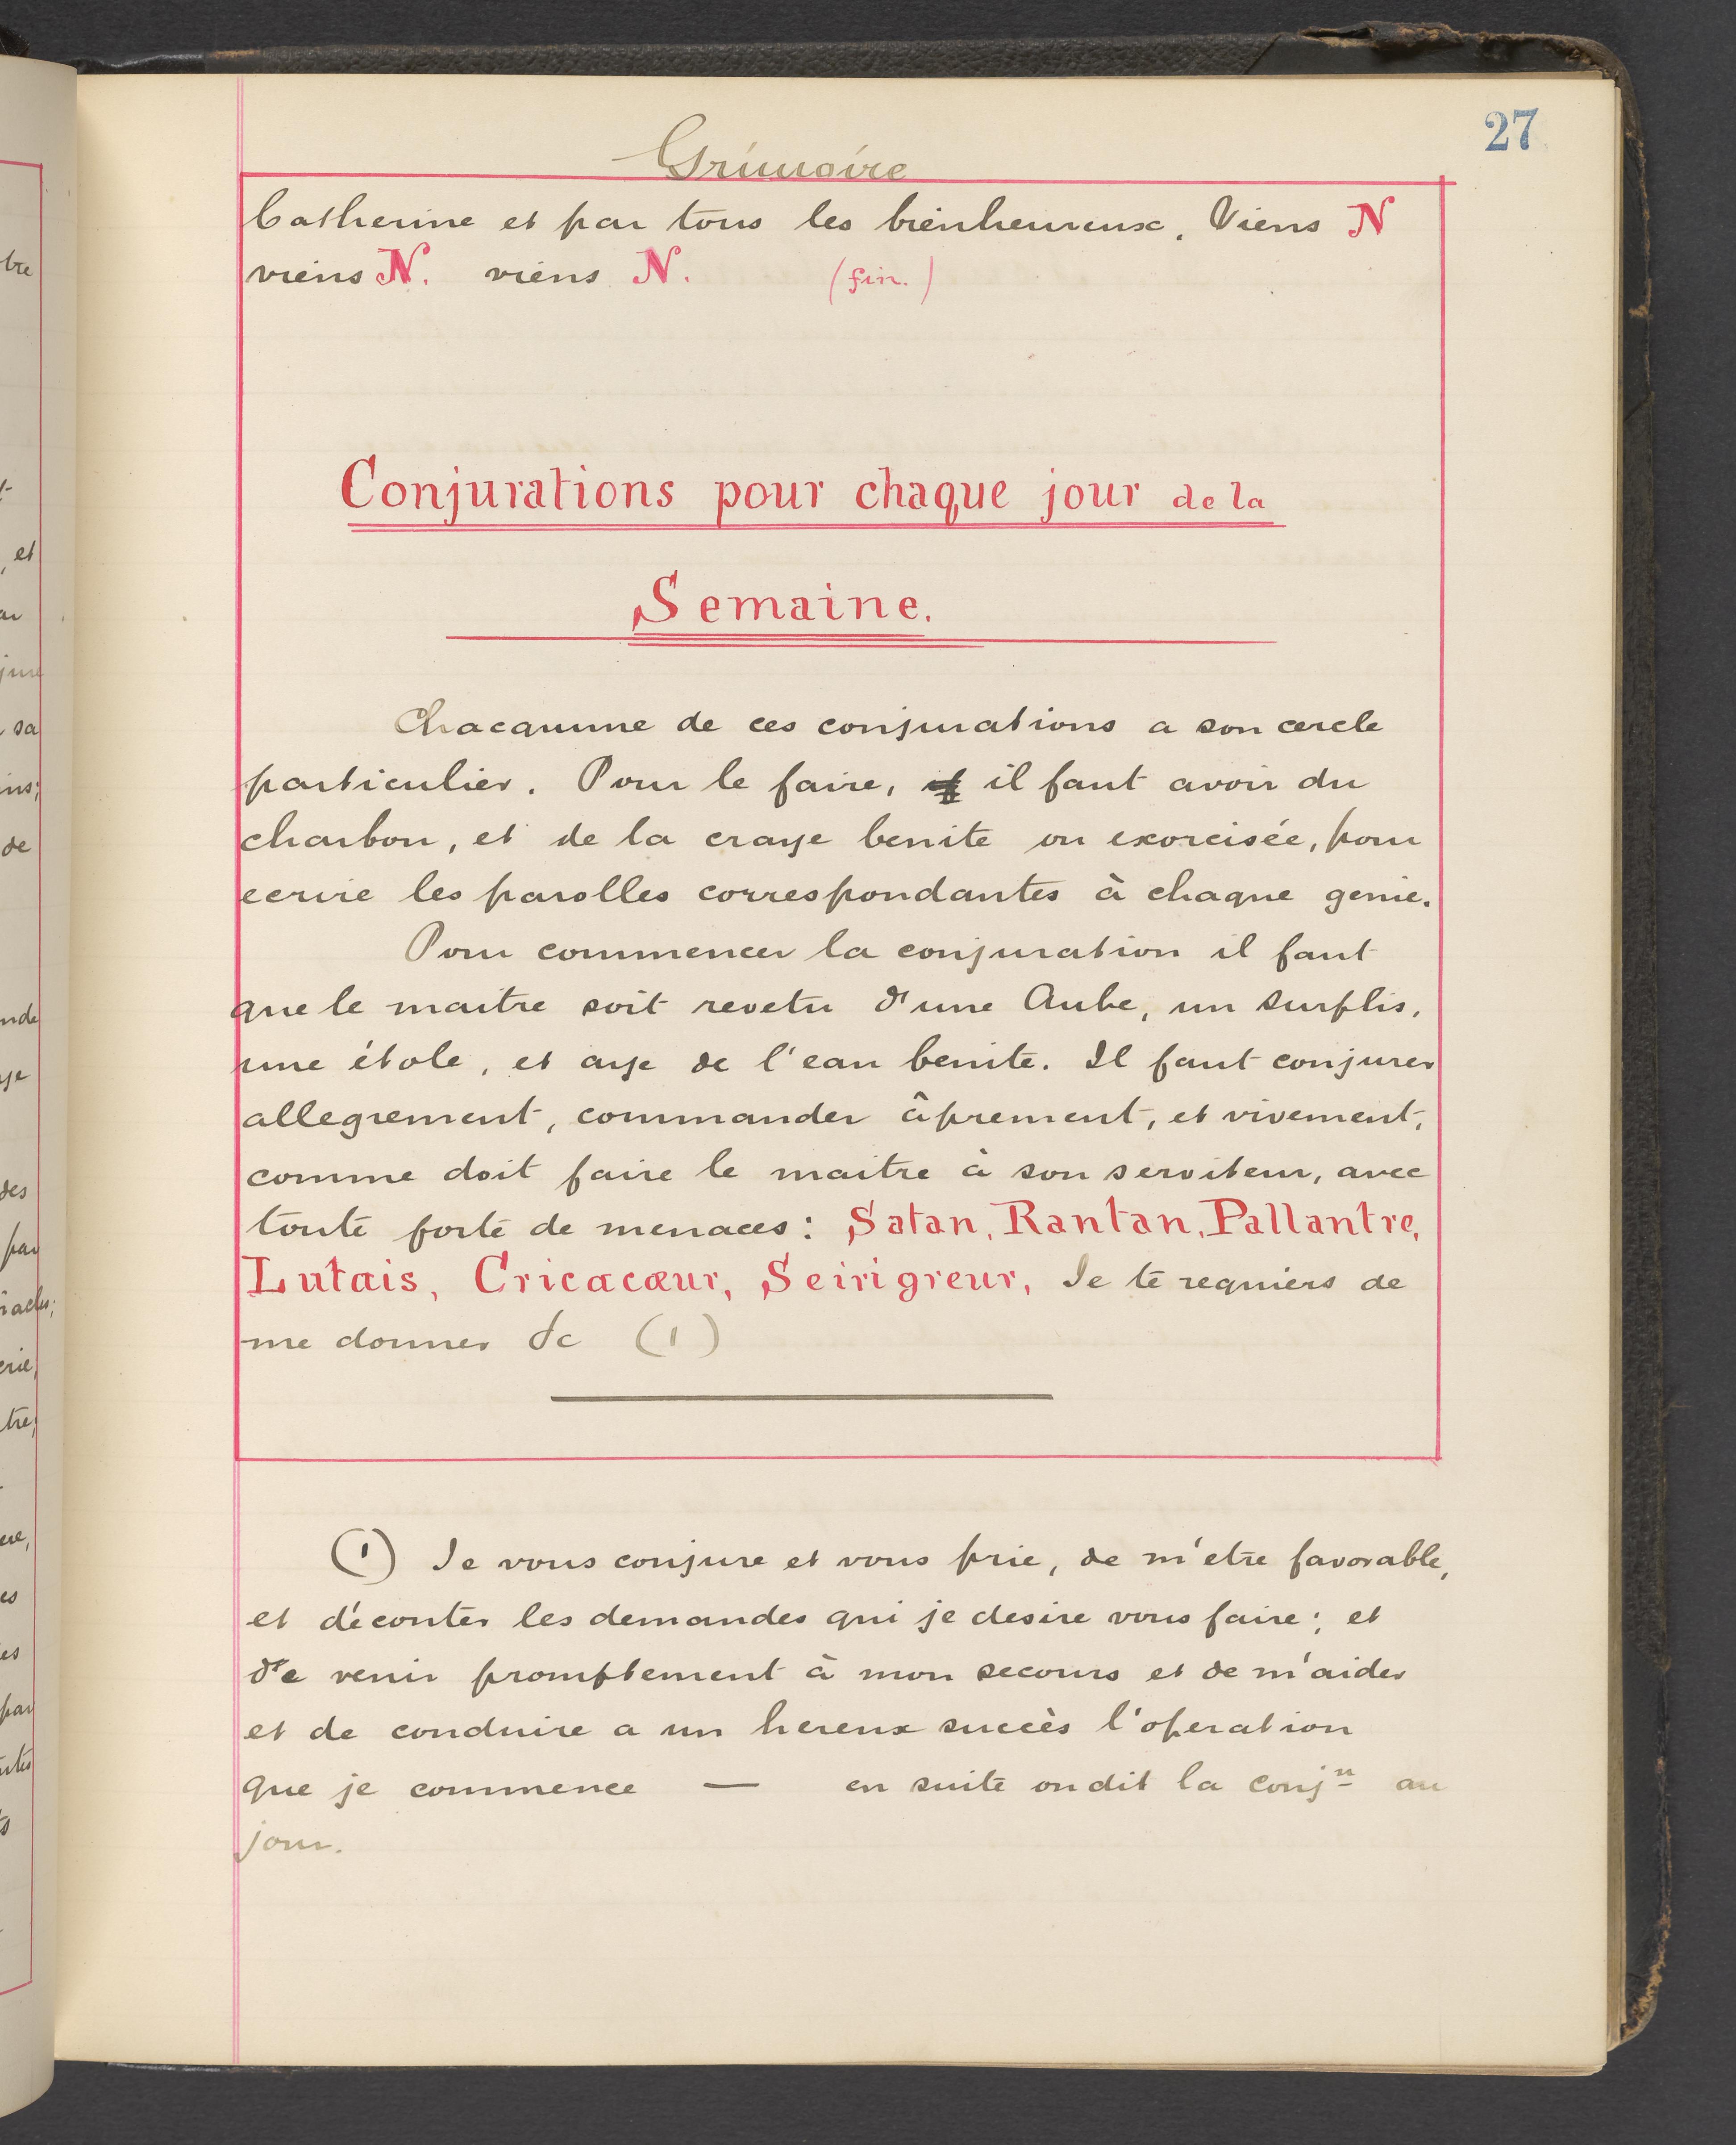 27
Grimoire
Catherine et par tous les bienheureux. Viens N
viens N. viens N. (fin.)
Conjurations pour chaque jour de la
Semaine.
Chacqunne de ces conjurations a son cercle
particulier. Pour le faire, il faut avoir du
charbon, et de la craye benite ou exorcisée, pour
ecrire les parolles correspondantes à chaque genie.
Pour commencer la conjuration il faut
que le maitre soit revetu d'une Aube, un surplis,
une étole, et aye de l'eau benite. Il faut conjurer
allegrement, commander âprement, et vivement,
comme doit faire le maitre à son serviteur, avec
toute forte de menaces: Satan, Rantan, Pallantre,
Lutais, Cricacœur, Seirigreur, Je te requiers de
me donner &c (1)
(1) Je vous conjure et vous prie, de m'etre favorable,
et d'écouter les demandes qui je desire vous faire; et
de venir promptement à mon secours et de m'aider
et de conduire a un hereux succès l'operation
que je commence — en suite on dit la conjn au
jour.